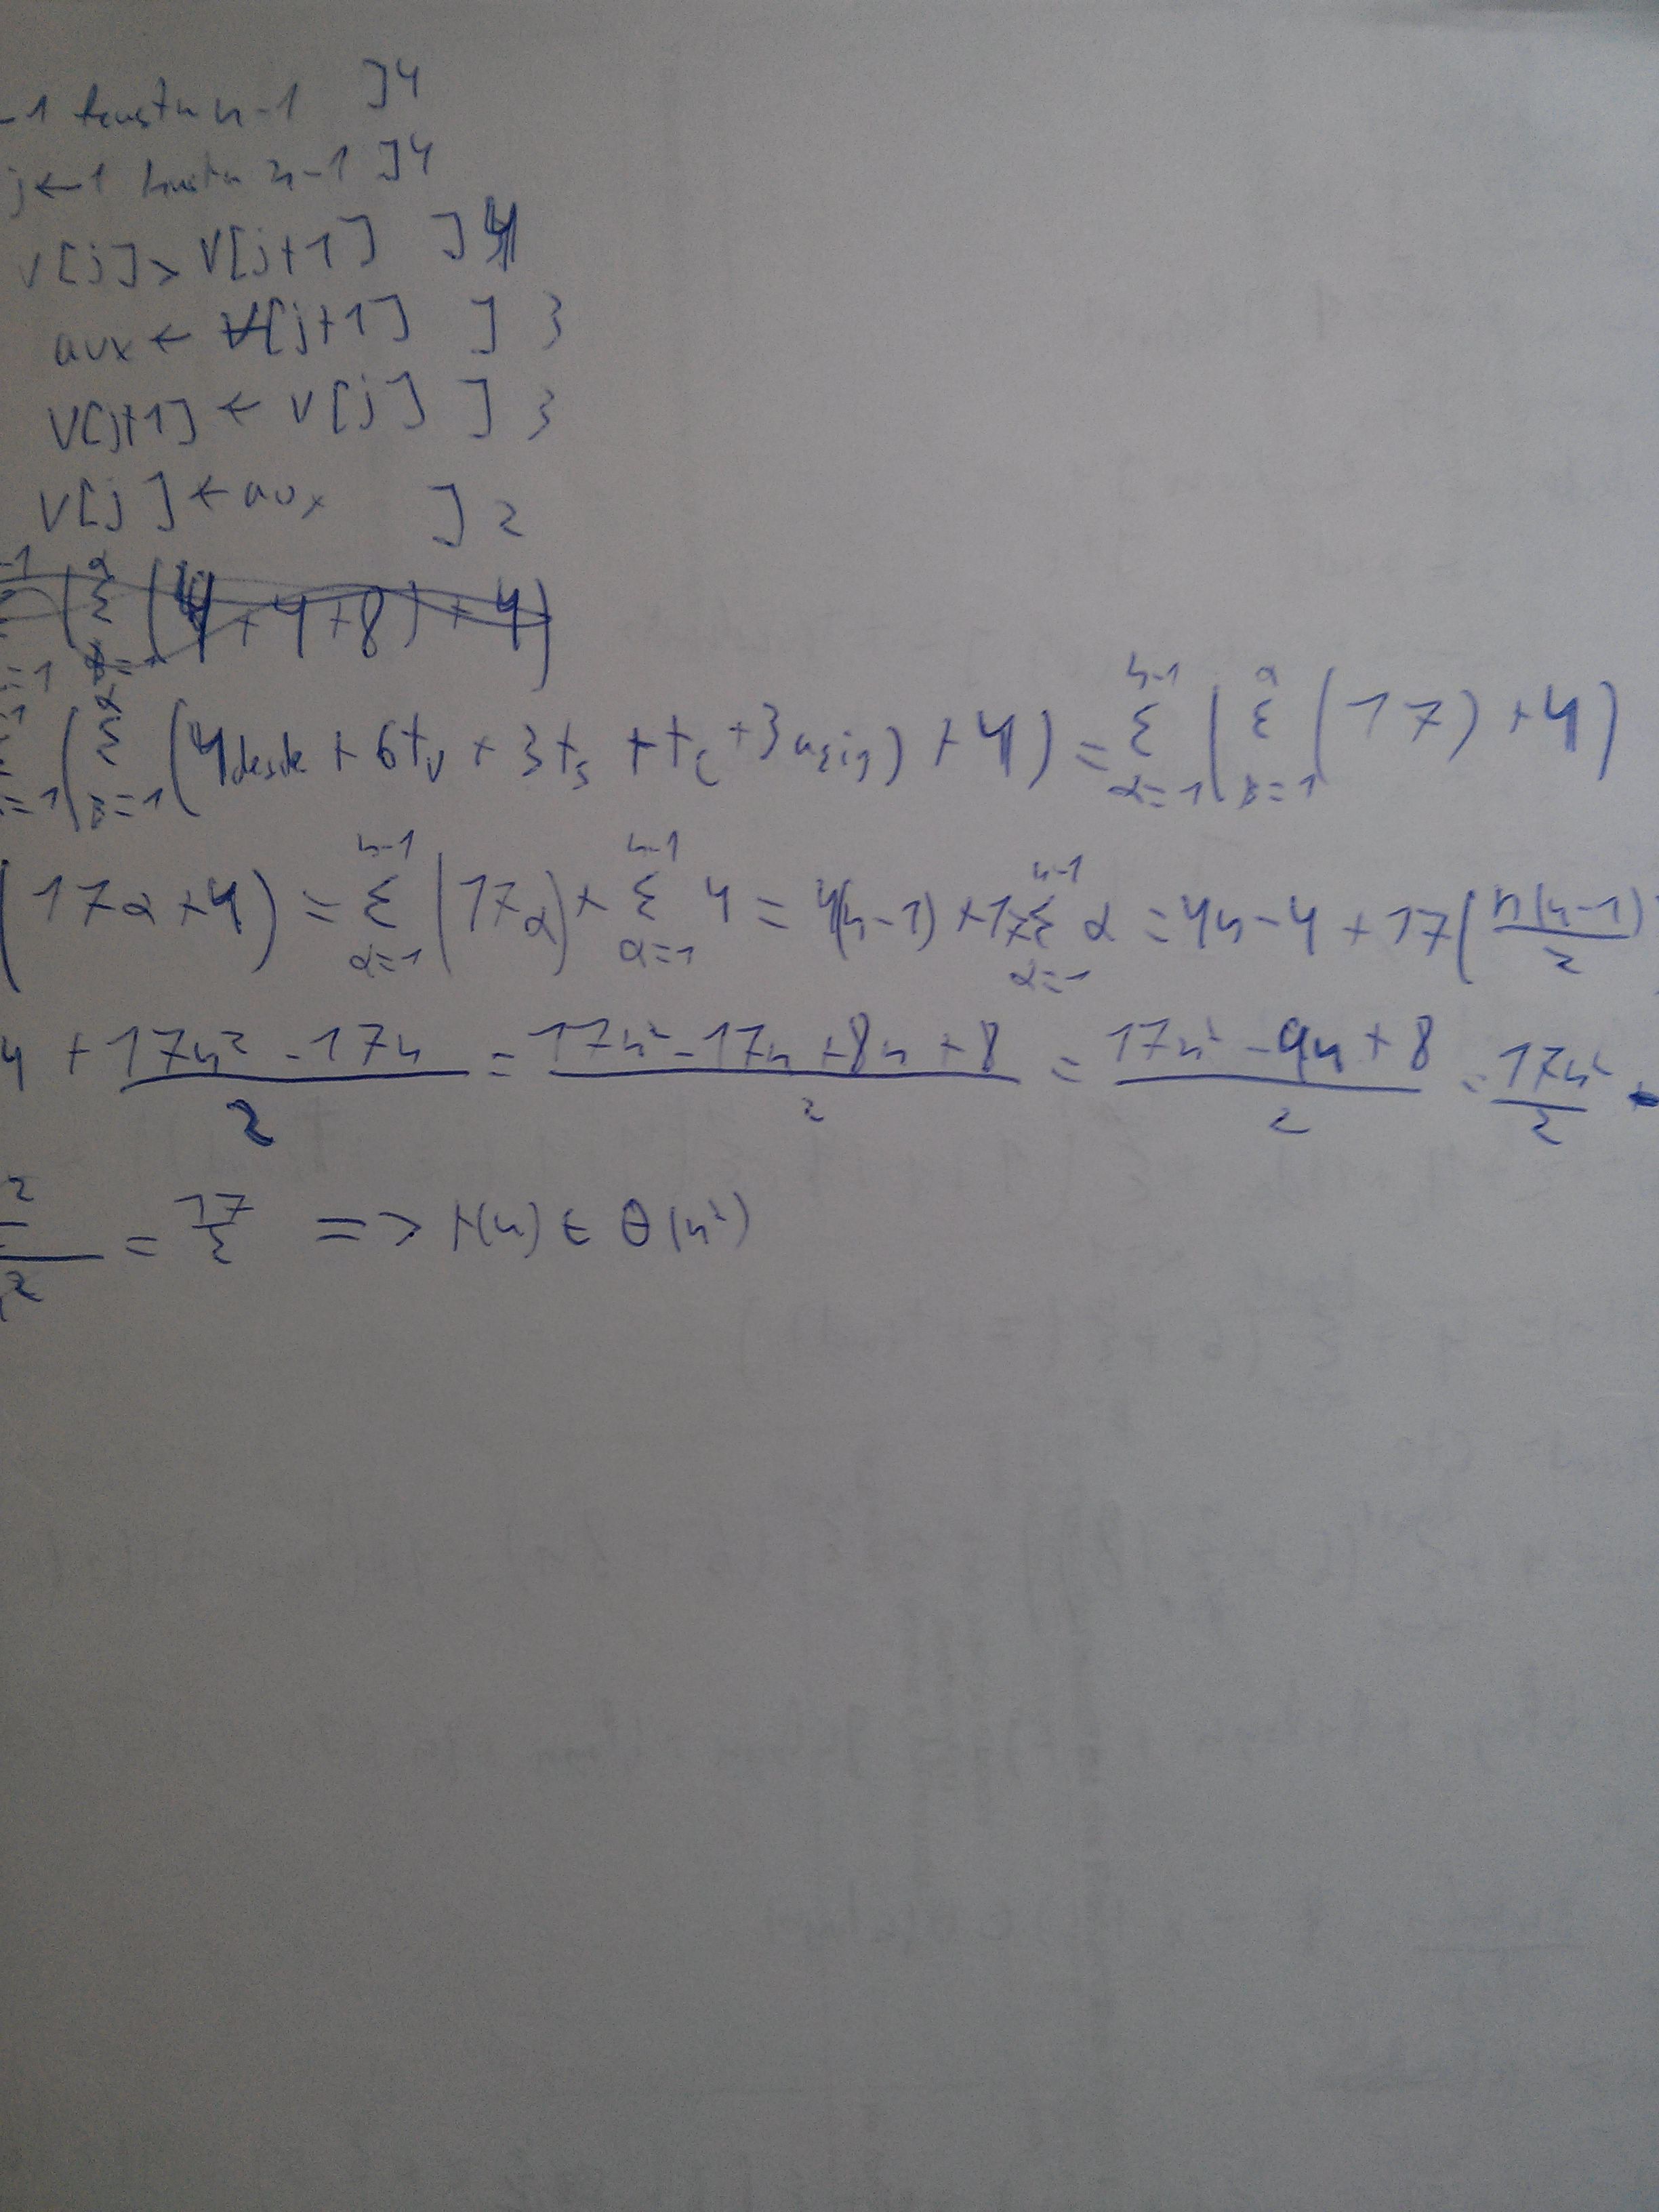 -1 hasta n-1 ]4
j←1 hasta n-1 ]4
v[j]> V[j+1] ]4
aux ← V[j+1] ] 3
V[j+1] ← v[j] ] 3
V[j] ← aux ] 2
-1 =1 (Σ (4+4+8)+4)
-1 =1 (α Σ β=1 (4desde + 6tv + 3ts + tc + 3asig) + 4) = n-1 Σ α=1 (α Σ β=1 (17) + 4)
(17α+4) = n-1 Σ α=1 (17α) + n-1 Σ α=1 4 = 4(n-1) + 17 n-1 Σ α=1 α = 4n-4 + 17(n(n-1)/2
4 + 17n²-17n/2 = 17n²-17n+8n+8/2 = 17n²-9n+8/2 = 17n²/2
2/2 = 17/2 => t(n) ∈ θ(n²)